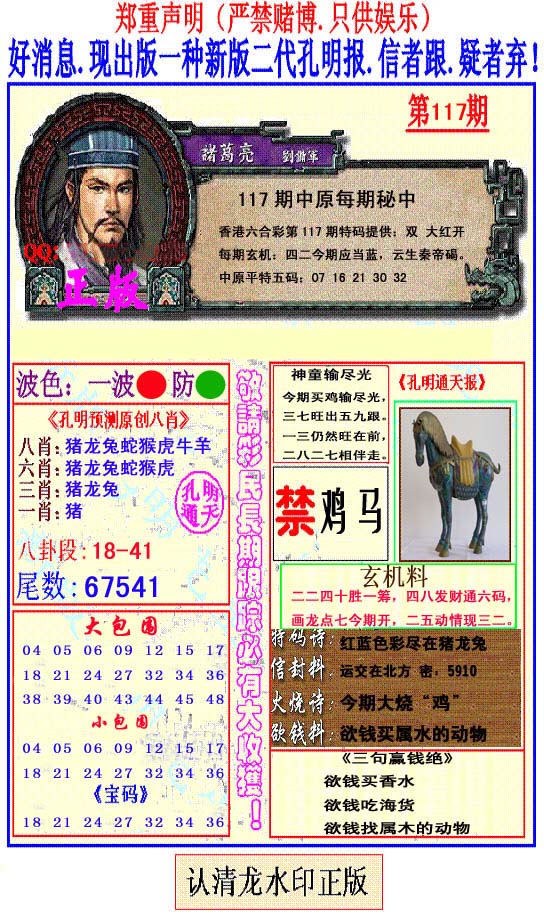 郑重声明（严禁赌博.只供娱乐）
好消息.现出版一种新版二代孔明报.信者跟.疑者弃!
第117期
諸葛亮 劉備軍
117期中原每期秘中
香港六合彩第117期特码提供：双 大红开
每期玄机：四二今期应当蓝，云生秦帝碣。
中原平特五码：07 16 21 30 32
QQ:
正版
波色：一波 防
《孔明预测原创八肖》
八肖:猪龙兔蛇猴虎牛羊
六肖:猪龙兔蛇猴虎
三肖:猪龙兔
一肖:猪
孔明
通天
八卦段:18-41
尾数:67541
大包围
04 05 06 09 12 15 17
18 21 24 27 32 34 36
38 39 40 43 44 45 48
小包围
04 05 06 09 12 15 17
18 21 24 27 32 34 36
《宝码》
18 21 24 27 32 34 36
敬請彩民長期跟踪必有大收獲！
神童输尽光
今期买鸡输尽光，
三七旺出五九跟。
一三仍然旺在前，
二八二七相伴走。
《孔明通天报》
禁鸡马
玄机料
二二四十胜一筹，四八发财通六码，
画龙点七今期开，二五动情现三二。
特码诗：红蓝色彩尽在猪龙兔
信封料：运交在北方 密：5910
火烧诗：今期大烧“鸡”
欲钱料：欲钱买属水的动物
《三句赢钱绝》
欲钱买香水
欲钱吃海货
欲钱找属木的动物
认清龙水印正版